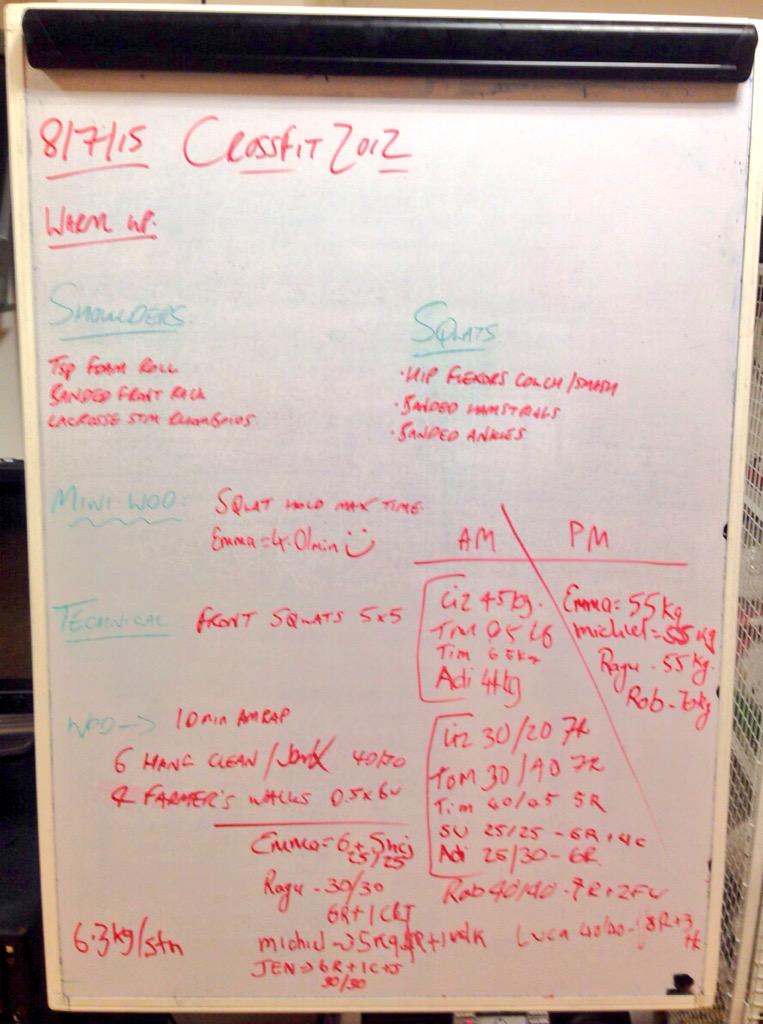 8/7/15 CROSSFIT 2012
WARM UP.
SHOULDERS
TSP FOAM ROLL
BANDED FRONT RACK
LACROSSE STM RHOMBOIDS
SQUATS
• HIP FLEXORS COUCH / SMASH
• BANDED HAMSTRINGS
• BANDED ANKLES
MINI WOD: SQUAT HOLD MAX TIME.
Emma = 4.01min
AM PM
TECHNICAL FRONT SQUATS 5x5
Liz 45kg.
Tom
Tim 65kg
Adi 44kg
Emma = 55kg
michiel = 55kg
Ragu - 55kg.
Rob - 70kg
WOD → 10min AMRAP
6 HANG CLEAN / Jerk 40/30
& FARMER'S WALKS 0.5 x BW
Liz 30/20 7R
Tom 30/40 7R
Tim 5R
SU 25/25 - 6R + 4C
Adi 25/30 - 6R
Rob 40/40 - 7R + 2FW
Emma = 6 + 5
25/25
Ragu - 30/30
6R + 1 C&J
michiel - 35kg + 1 walk
Luca 40/40 - 8R + 3
JEN → 6R + 1C+J
30/30
6.3kg/stn